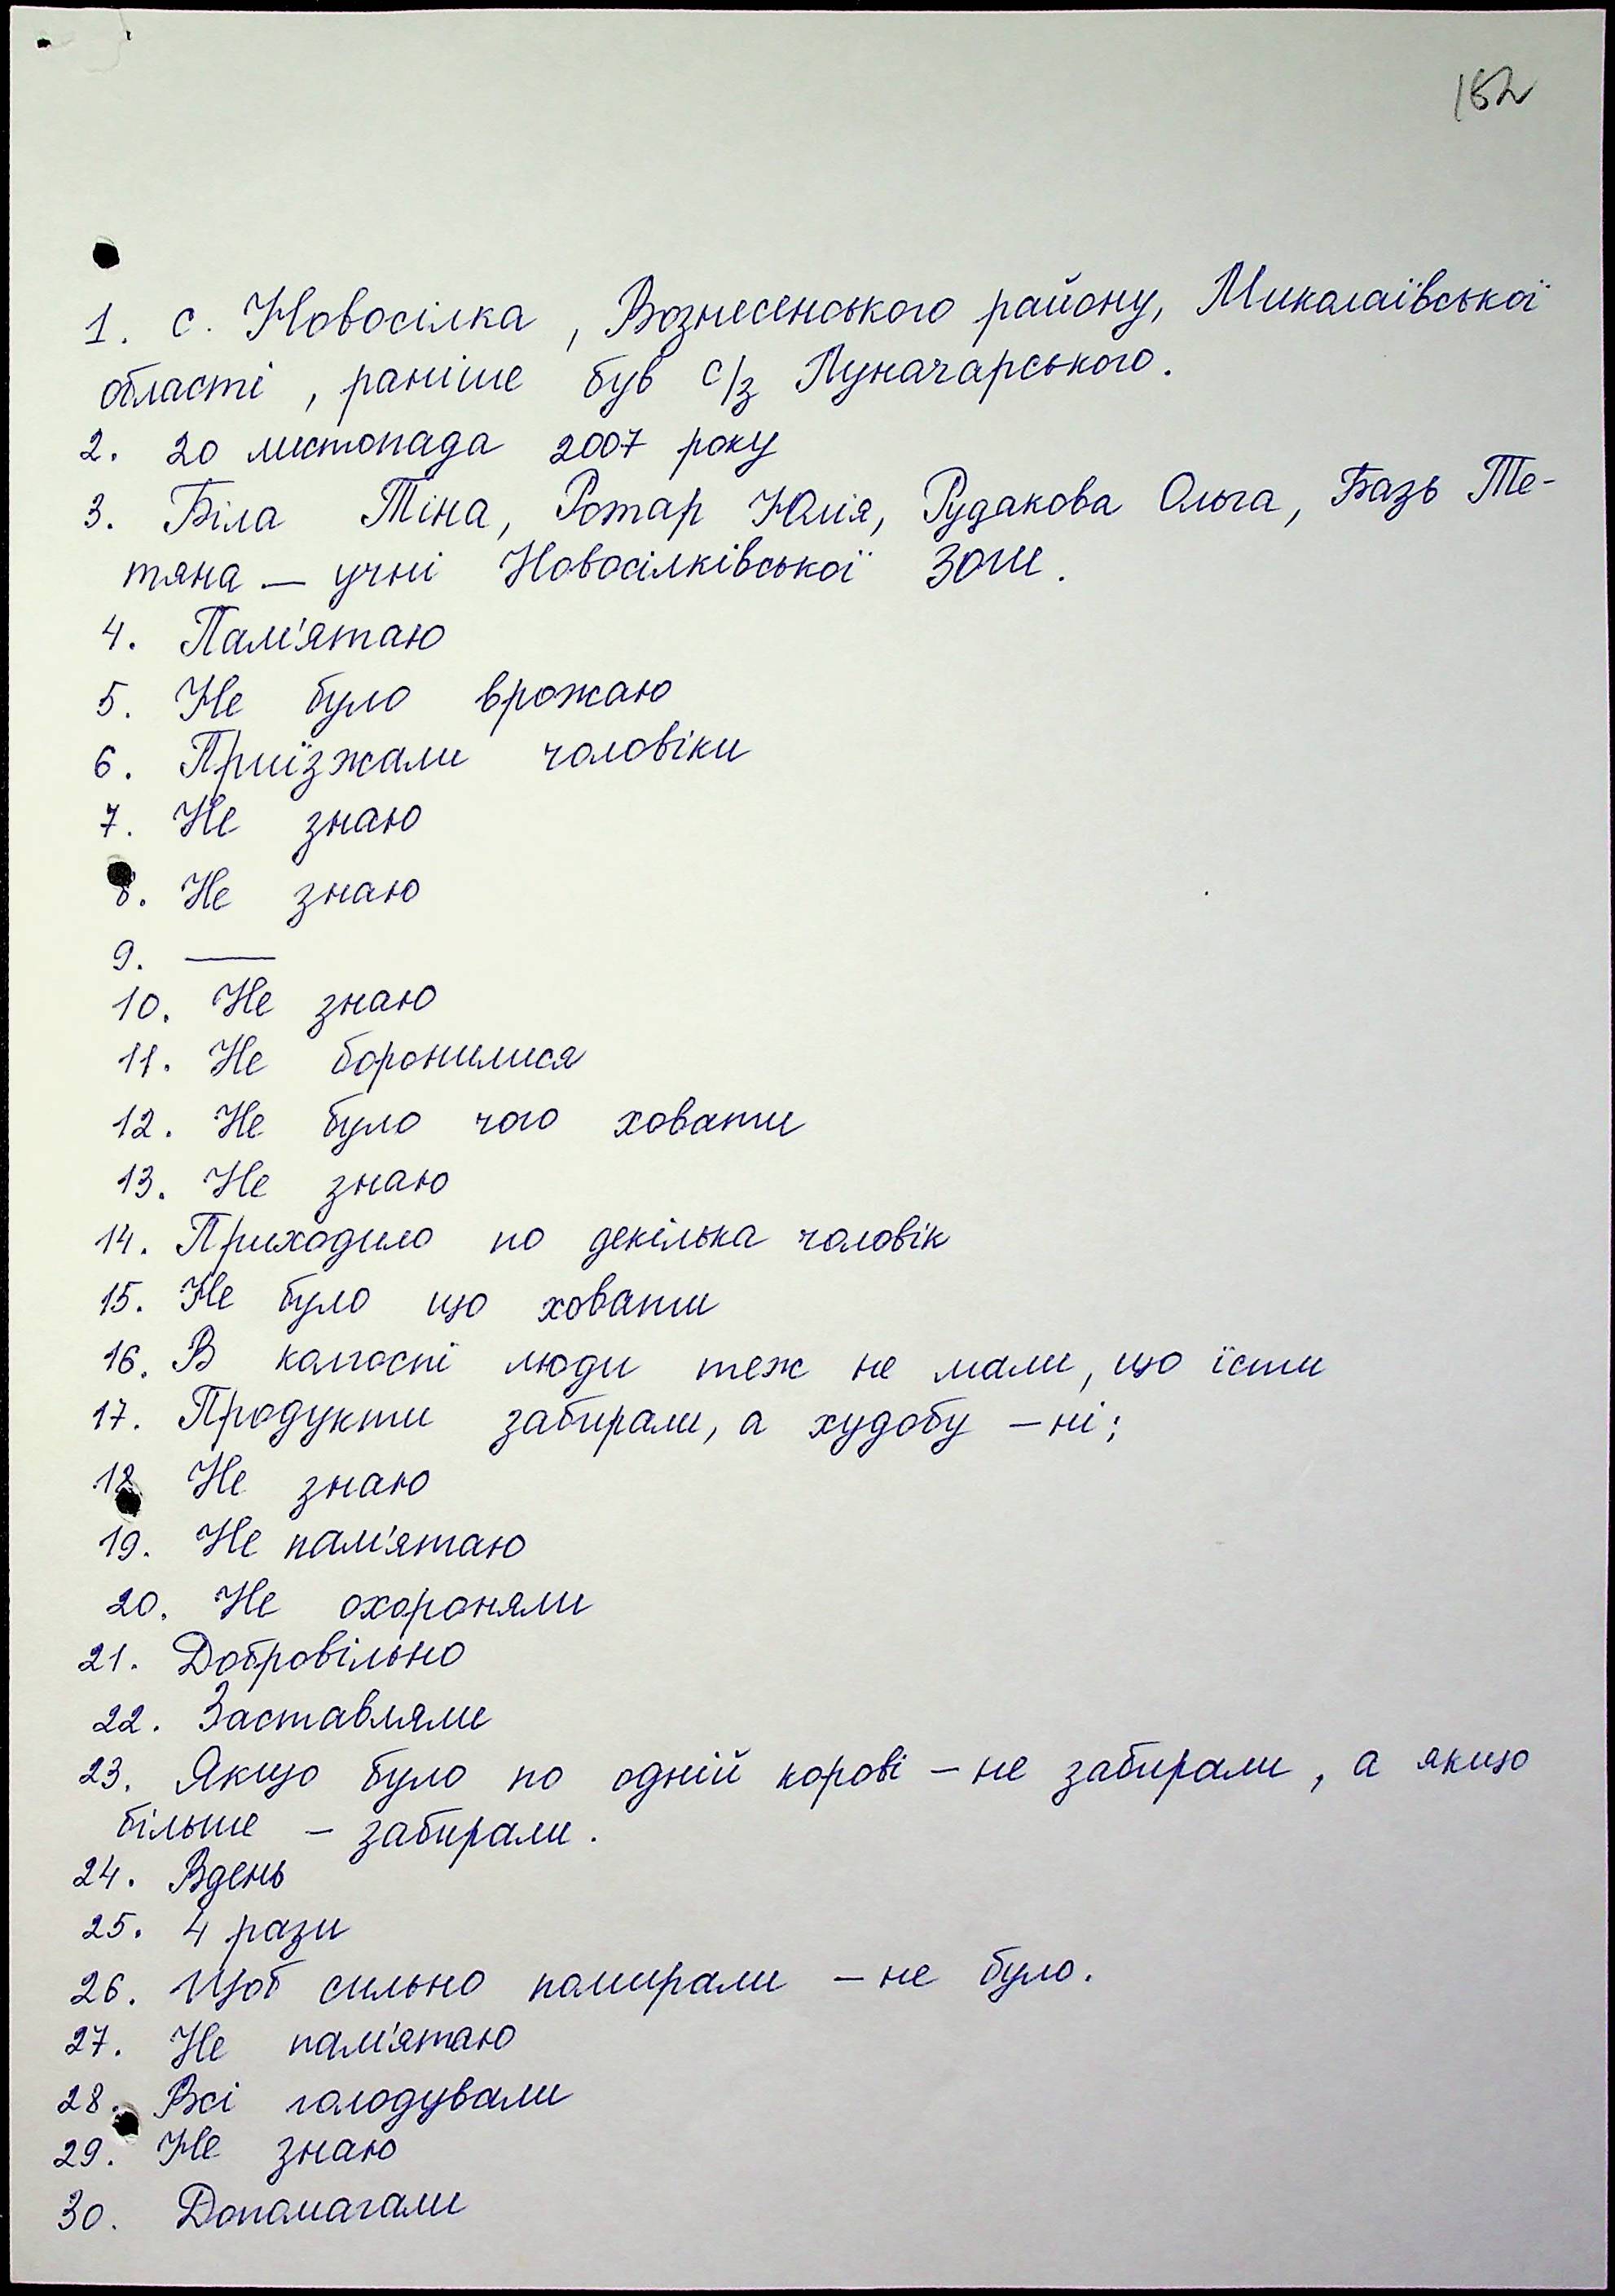 152
1. с. Новосілка, Вознесенського району, Миколаївської
області, раніше був с/з Луначарського.
2. 20 листопада 2007 року
3. Біла Тіна, Ротар Юлія, Рудакова Ольга, Базь Те-
тяна — учні Новосілківської ЗОШ.
4. Пам'ятаю
5. Не було врожаю
6. Приїзжали чоловіки
7. Не знаю
8. Не знаю
9. —
10. Не знаю
11. Не боронилися
12. Не було чого ховати
13. Не знаю
14. Приходило по декілька чоловік
15. Не було що ховати
16. В колгоспі люди теж не мали, що їсти
17. Продукти забирали, а худобу – ні;
18 Не знаю
19. Не пам'ятаю
20. Не охороняли
21. Добровільно
22. Заставляли
23. Якщо було по одній корові – не забирали, а якщо
більше – забирали.
24. Вдень
25. 4 рази
26. Щоб сильно помирали – не було.
27. Не пам'ятаю
28. Всі голодували
29. Не знаю
30. Допомагали